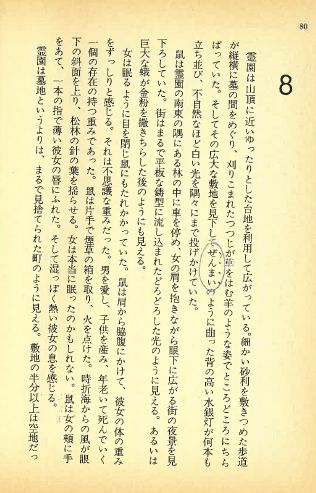 80
8
霊園は山頂に近いゆったりとした台地を利用して広がっている。細かい砂利を敷きつめた歩道
が縦横に墓の間をめぐり、刈りこまれたつつじが草をはむ羊のような姿でところどころにちら
ばっていた。そしてその広大な敷地を見下してぜんまいのように曲った背の高い水銀灯が何本も
立ち並び、不自然なほど白い光を隅々にまで投げかけていた。
鼠は霊園の南東の隅にある林の中に車を停め、女の肩を抱きながら眼下に広がる街の夜景を見
下ろしていた。街はまるで平板な鋳型に流し込まれたどろどろした光のように見える。あるいは
巨大な蛾が金粉を撒きちらした後のようにも見える。
女は眠るように目を閉じ鼠にもたれかかっていた。鼠は肩から脇腹にかけて、彼女の体の重み
をずっしりと感じる。それは不思議な重みだった。男を愛し、子供を産み、年老いて死んでいく
一個の存在の持つ重みであった。鼠は片手で煙草の箱を取り、火を点けた。時折海からの風が眼
下の斜面を上り、松林の針の葉を揺らせる。女は本当に眠ったのかもしれない。鼠は女の頬に手
をあて、一本の指で薄い彼女の唇にふれた。そして湿っぽく熱い彼女の息を感じる。
霊園は墓地というよりは、まるで見捨てられた町のように見える。敷地の半分以上は空地だっ